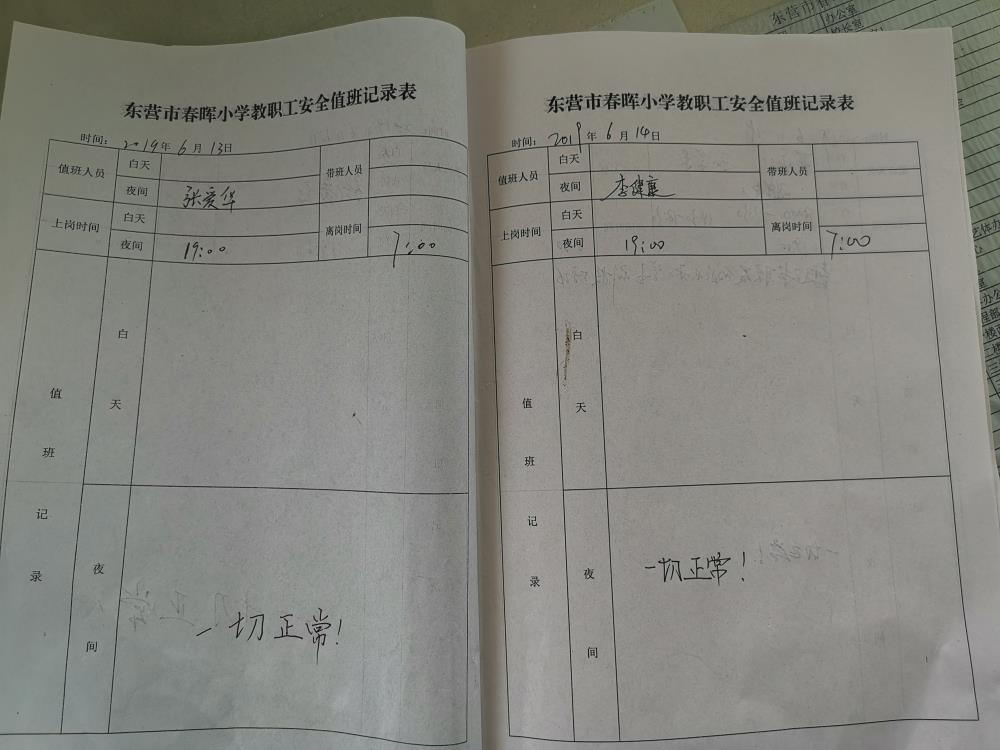 东营市春晖小学教职工安全值班记录表
时间: 2019年 6月 13日
值班人员 白天 带班人员
夜间 张爱华
上岗时间 白天 离岗时间
夜间 19:00 7:00
值班记录 白天
夜间 一切正常!
东营市春晖小学教职工安全值班记录表
时间: 2019年 6月 14日
值班人员 白天 带班人员
夜间 李健
上岗时间 白天 离岗时间
夜间 19:00 7:00
值班记录 白天
夜间 一切正常!
东营市春
办公室
校长室